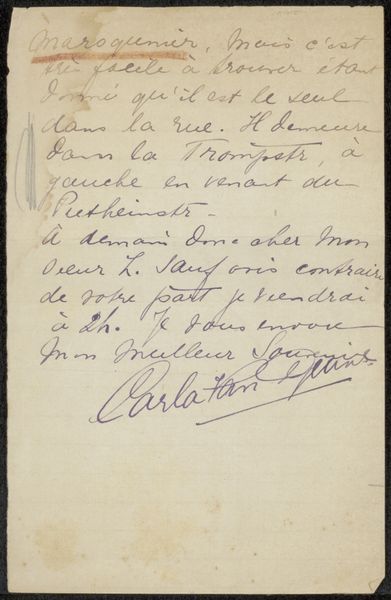 Maroquinier, Mais c'est
très facile à trouver étant
donné qu'il est le seul
dans la rue. Il demeure
dans la Trompstr, à
gauche en venant du
Pietheinstr.
À demain donc cher Mon
sieur Z. Sauf avis contraire
de votre part je viendrai
à 2h. Je vous envoie
mon meilleur Souvenir
Carla van